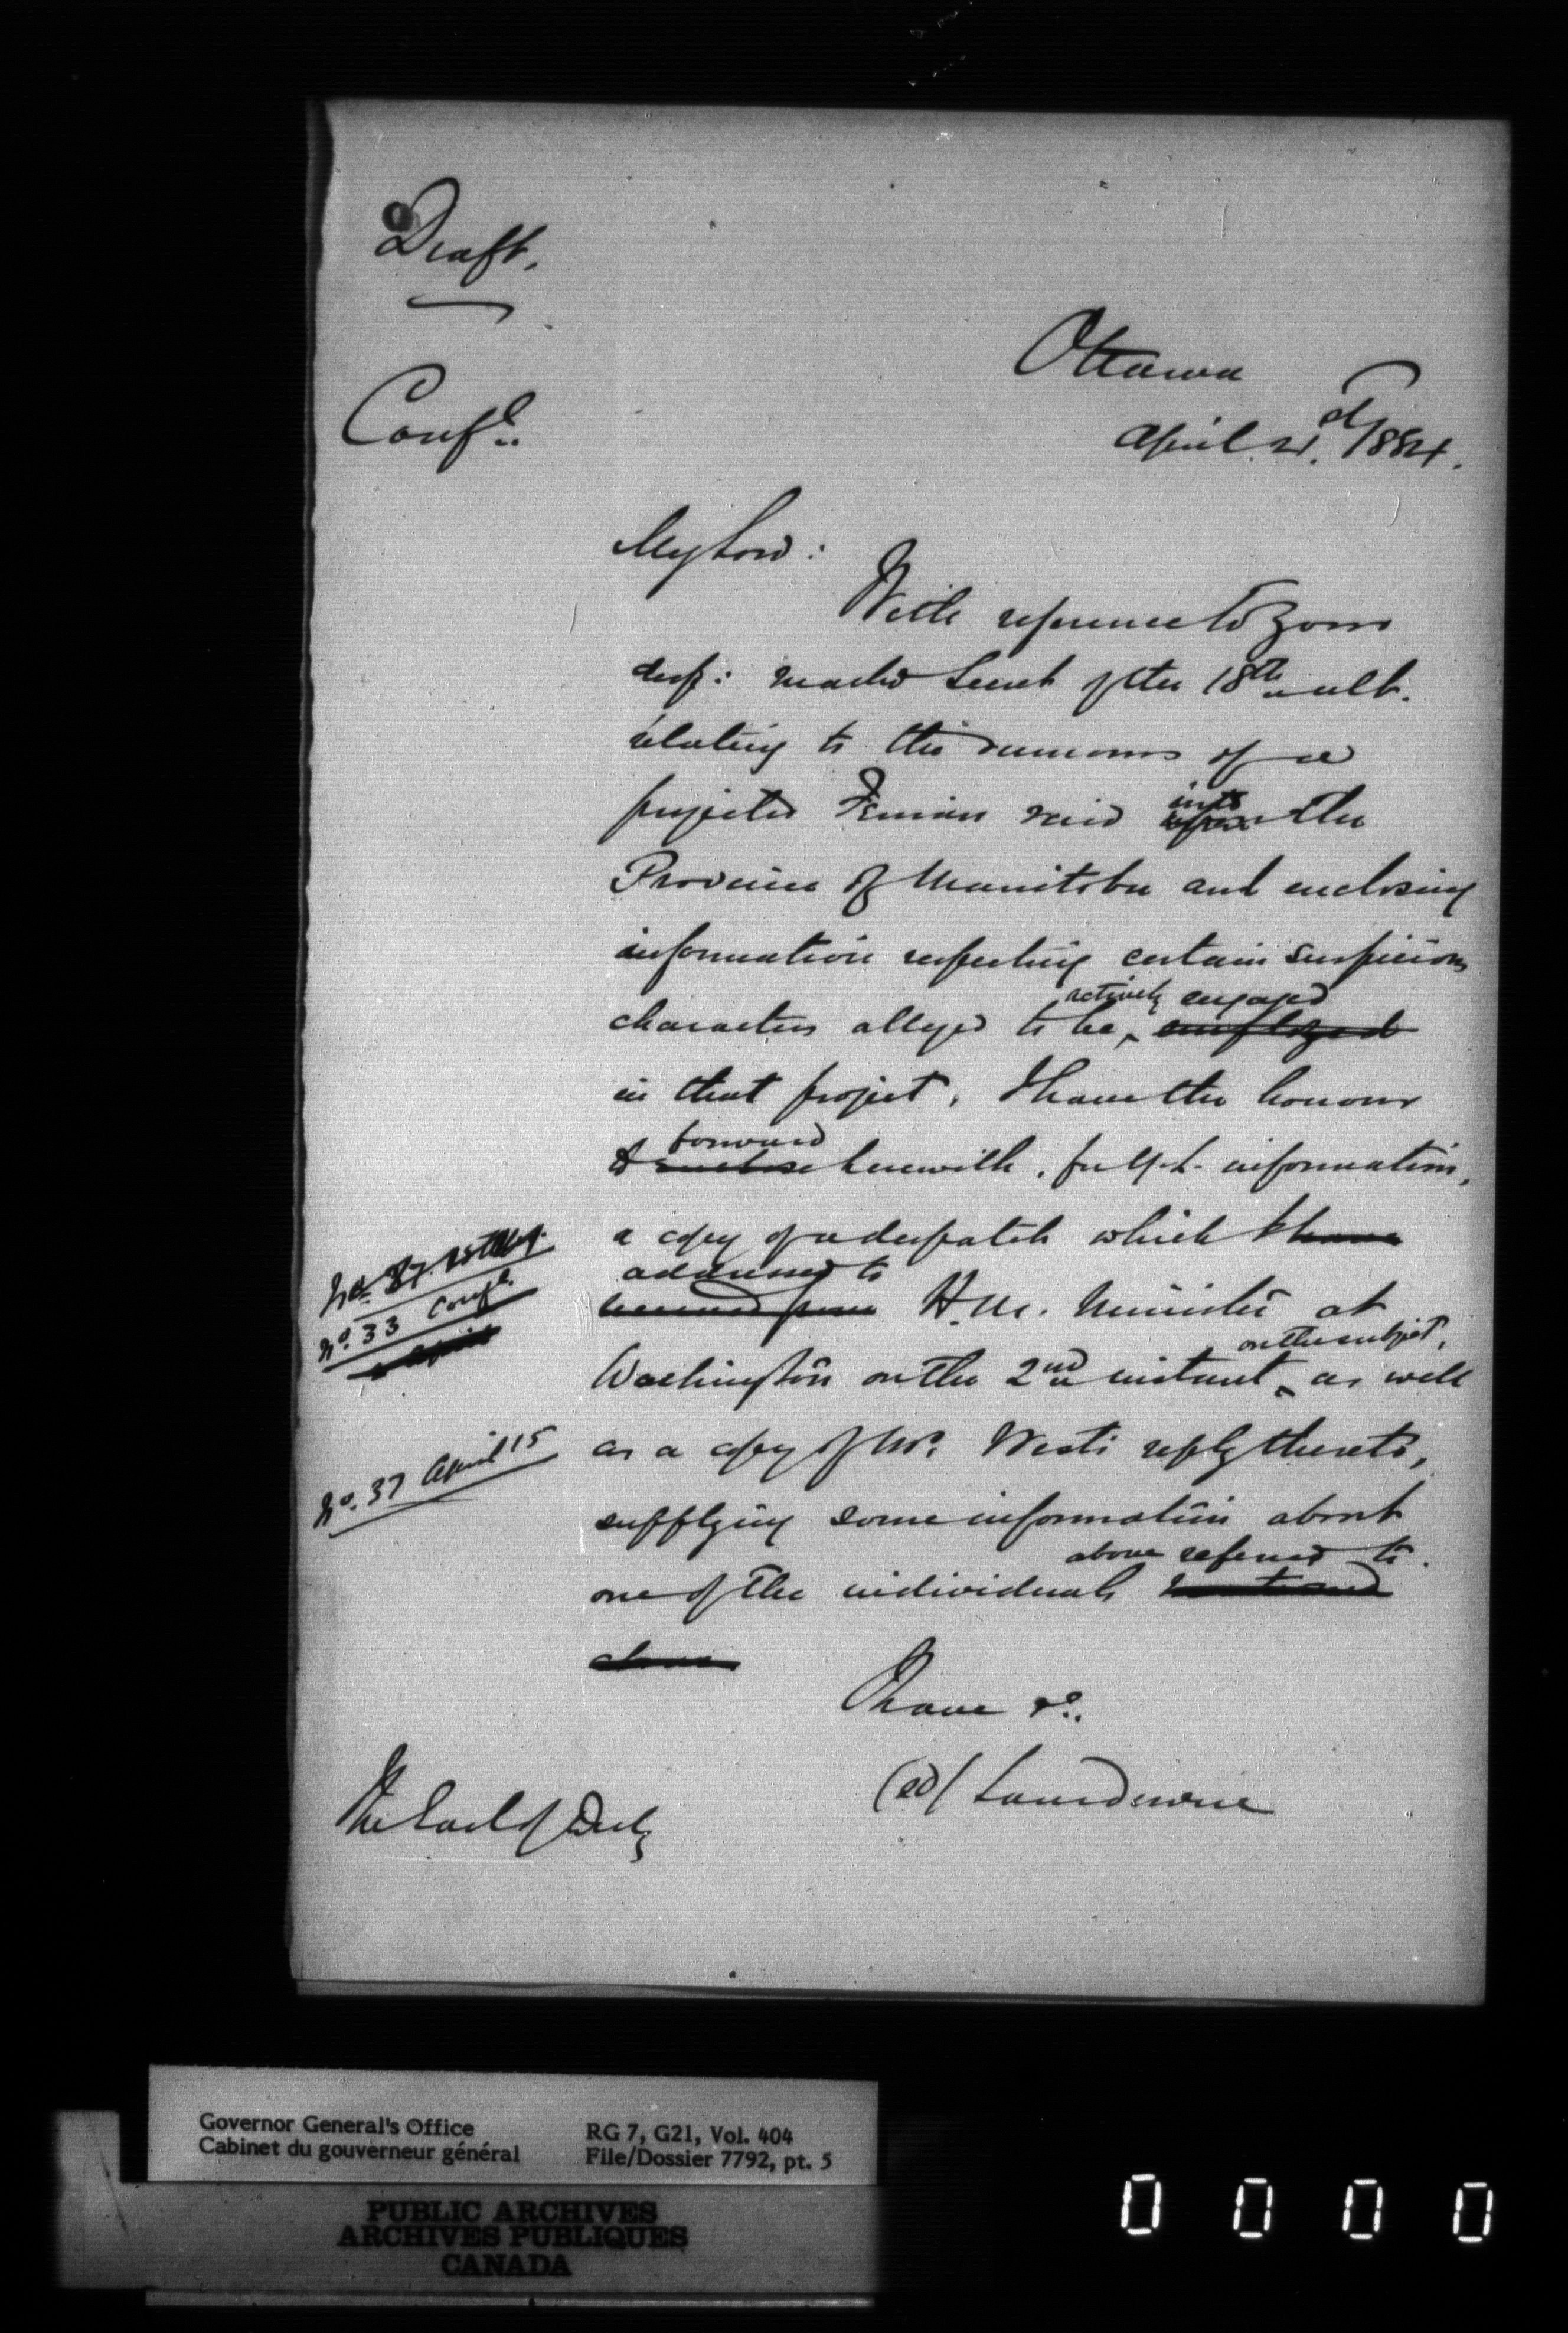 Draft.
Ottawa
Conf.
April 21. 1884.
My Lord:
With reference to your
desp: marked Secret of the 18th ult.
relating to the rumours of a
projected Fenian raid into upon the
Province of Manitoba and enclosing
information respecting certain suspicious
actively engaged
characters alleged to be employed
in that project, I have the honour
forward
to enclose herewith, for Y.L. information,
a copy of a despatch which I have
addressed to
received from H.M. Minister at
on the subject,
Washington on the 2nd instant, as well
as a copy of Mr. West's reply thereto,
supplying some information about
above referred to.
one of the individuals mentioned
above
No. 33 Conf.
No. 37 April 15
I have &c.
(sd) Lansdowne
The Earl of Derby
Governor General's Office
Cabinet du gouverneur général
RG 7, G21, Vol. 404
File/Dossier 7792, pt. 5
PUBLIC ARCHIVES
ARCHIVES PUBLIQUES
CANADA
0 0 0 0